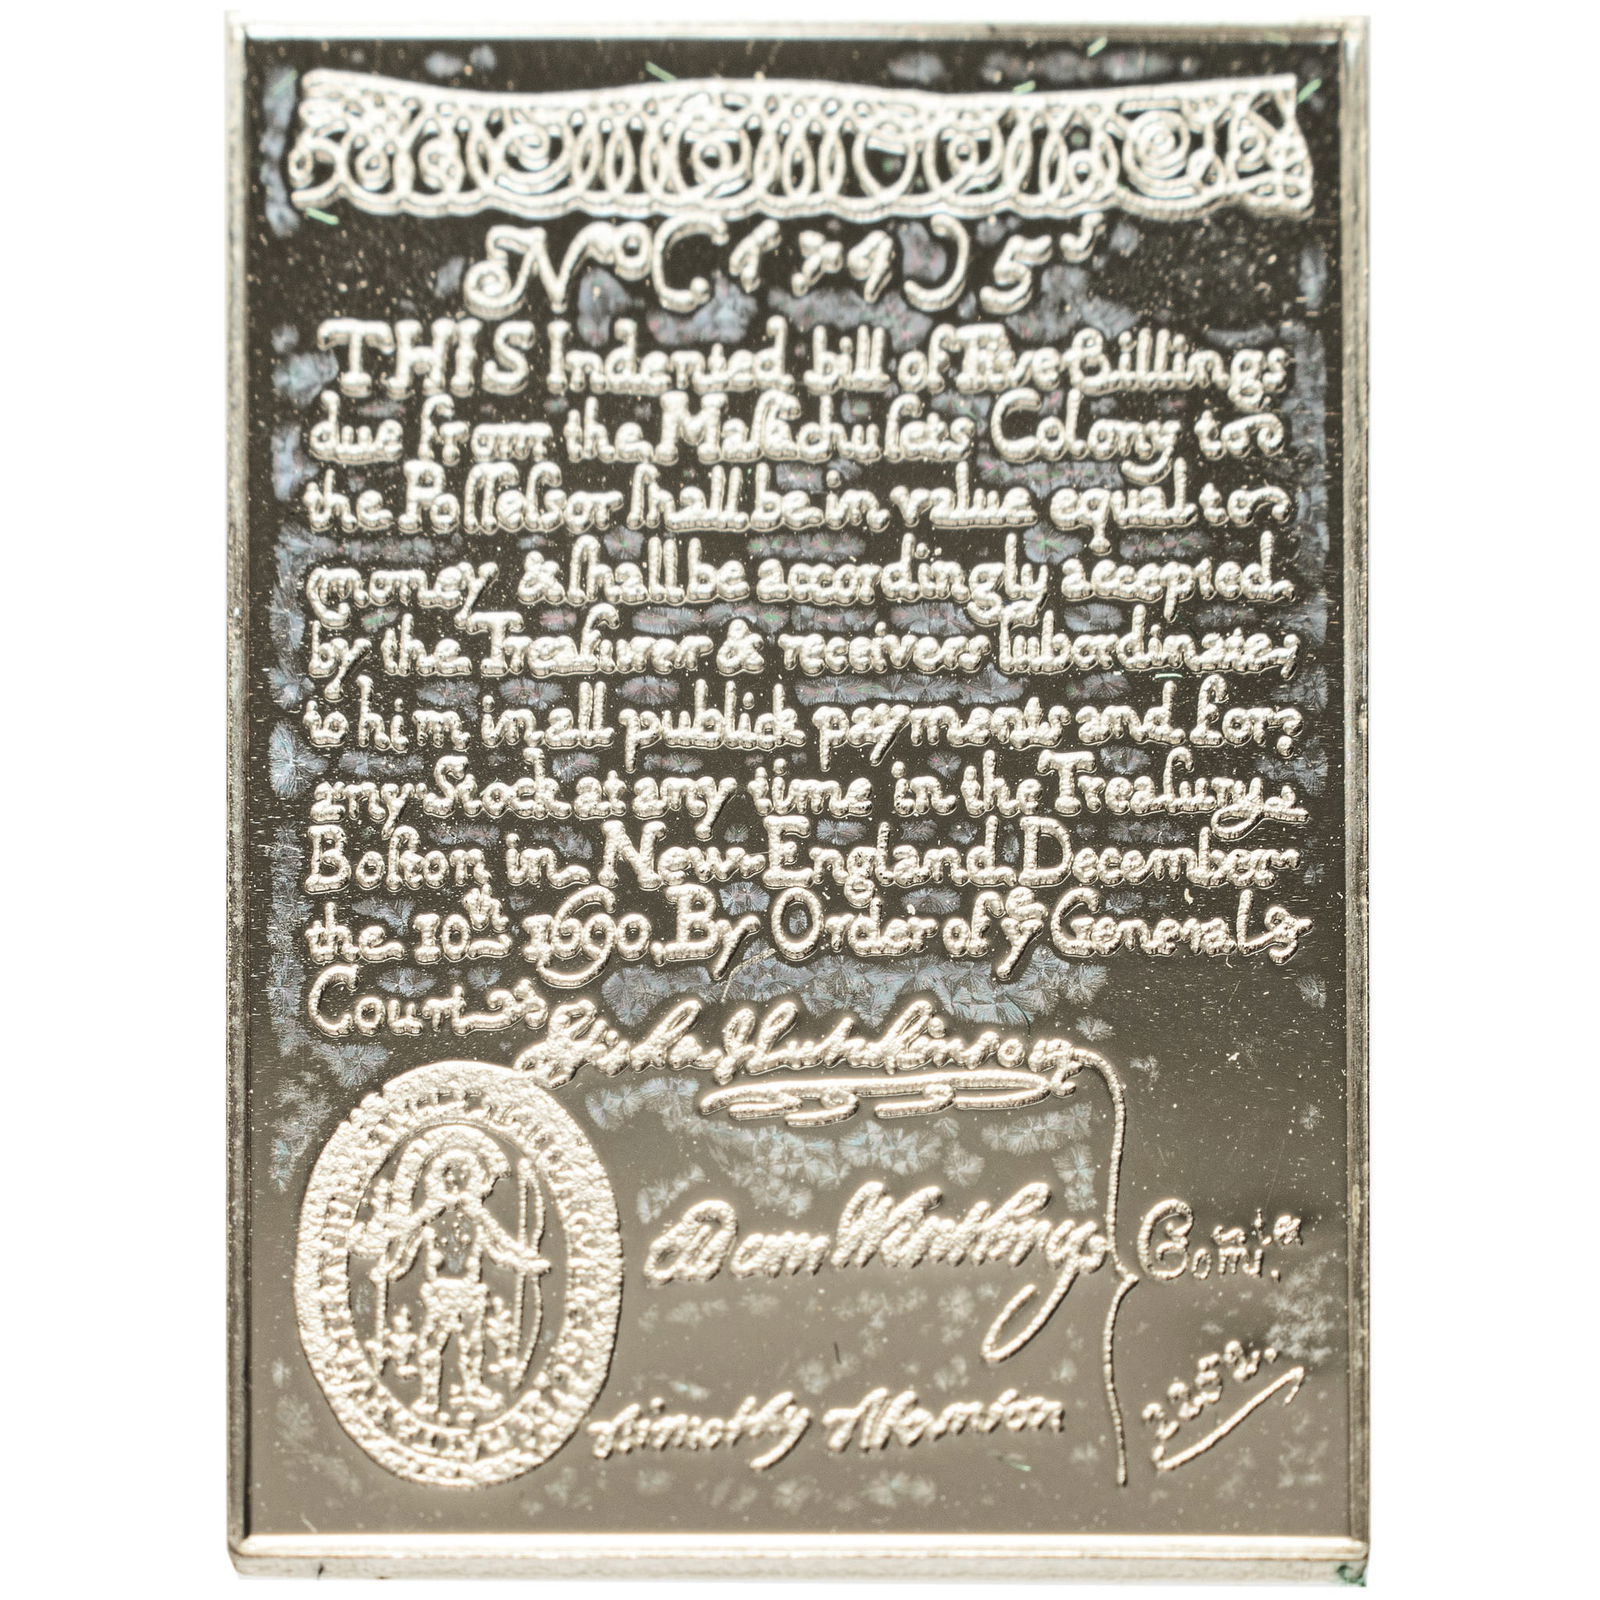 No ( 1 7 4 ) 5s
THIS Indented bill of Five ſhillings
due from the Maſſachuſets Colony to
the Poſſeſsor ſhall be in value equal to
money & ſhall be accordingly accepted
by the Treaſurer & receivers ſubordinate
to him in all publick payments and for
any Stock at any time in the Treaſury
Boſton in New England December
the 10th 1690 By Order of ye General
Court
Elisha Hutchinson
Comtee
2252.